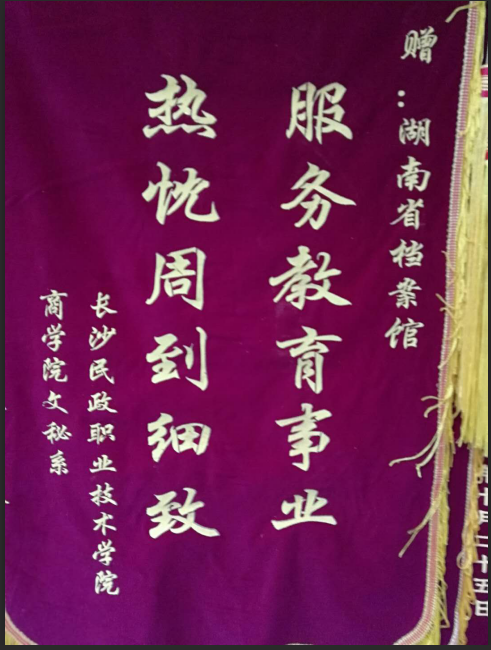 赠：湖南省档案馆
服务教育事业
热忱周到细致
长沙民政职业技术学院
商学院文秘系
十月二十五日